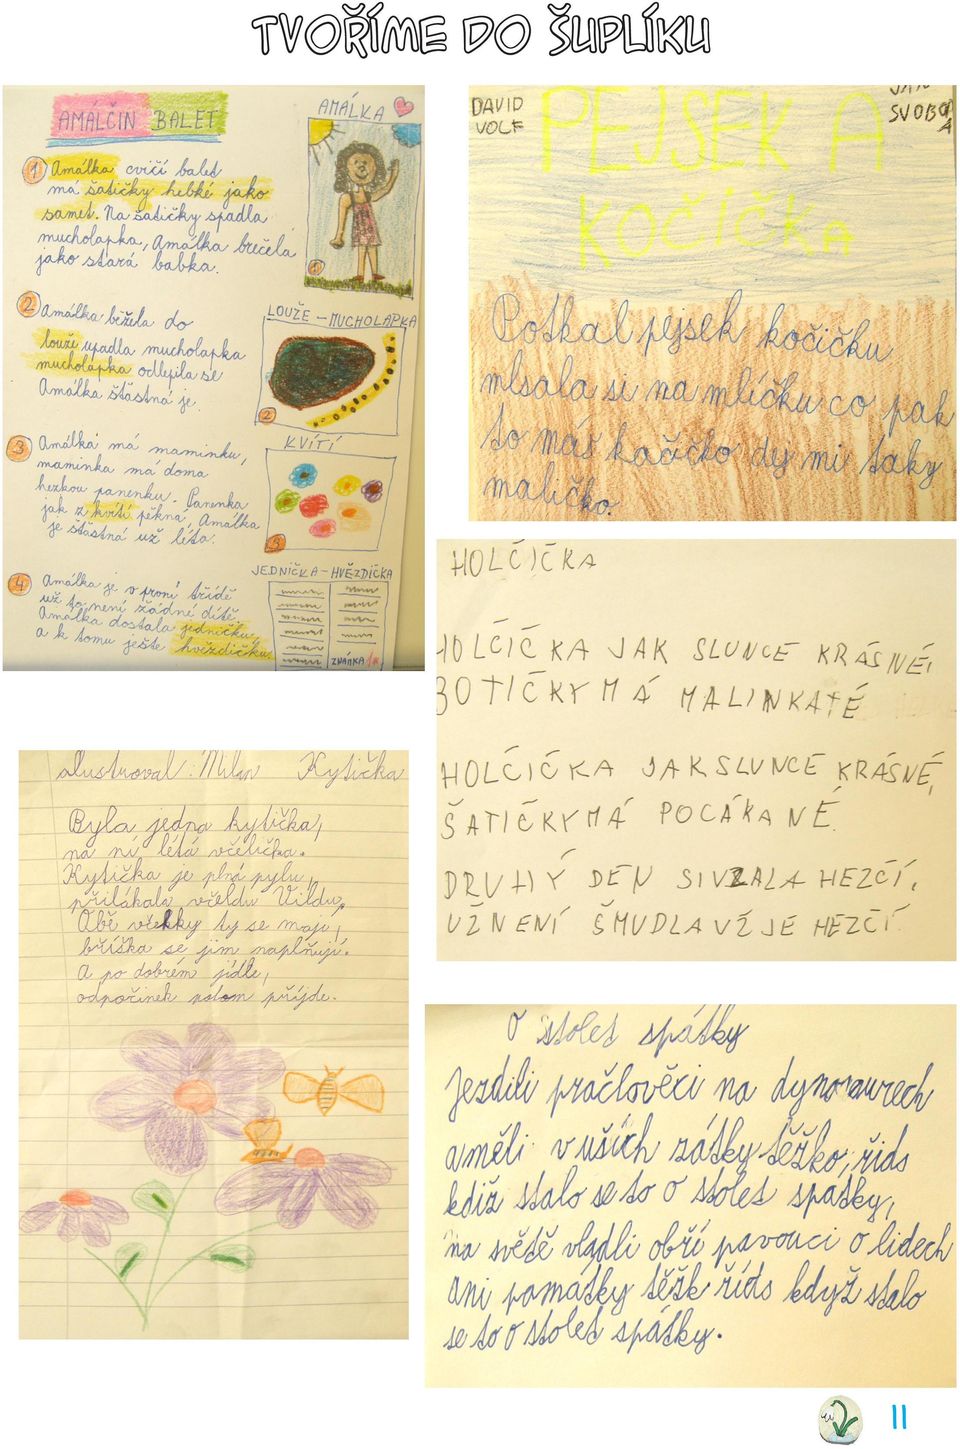 TVOŘÍME DO ŠUPLÍKU
AMÁLČIN BALET
AMÁLKA
1 Amálka cvičí balet
má šatičky hebké jako
samet. Na šatičky spadla
mucholapka, Amálka brečela
jako stará babka.
1
2 Amálka běžela do
louže upadla mucholapka
mucholapka odlepila se
Amálka šťastná je.
LOUŽE - MUCHOLAPKA
2
3 Amálka má maminku,
maminka má doma
hezkou panenku. Panenka
jak z kvítí pěkná, Amálka
je šťastná už léta.
KVÍTÍ
3
4 Amálka je v první třídě
už to není žádné dítě.
Amálka dostala jedničku,
a k tomu ješte hvězdičku.
JEDNIČKA - HVĚZDIČKA
ZNÁMKA 1*
DAVID
VOLF
JAN
SVOBODA
PEJSEK A
KOČIČKA
Potkal pejsek kočičku
mlsala si na mlíčku co pak
to máš kačičko dej mi taky
maličko.
HOLČIČKA
HOLČIČKA JAK SLUNCE KRÁSNÉ,
BOTIČKY MÁ MALINKATÉ
HOLČIČKA JAK SLUNCE KRÁSNÉ,
ŠATIČKY MÁ POCÁKANÉ.
DRUHÝ DEN SI VZALA HEZČÍ,
UŽ NENÍ ŠMUDLA VŽ JE HEZČÍ.
ilustroval: Milan Kytička
Byla jedna kytička,
na ní létá včelička.
Kytička je plná pylu,
přilákala včeldu Vildu.
Obě včelky ty se mají,
bříška se jim naplňují.
A po dobrém jídle,
odpočinek potom příjde.
O stolet spátky
Jezdili pračlověci na dynosaurech
a měli v uších zátky těžko, říds
když stalo se to o stolet spatky,
na světě vládli obří pavouci o lidech
ani památky těžk říds když stalo
se to o stolet spátky.
11